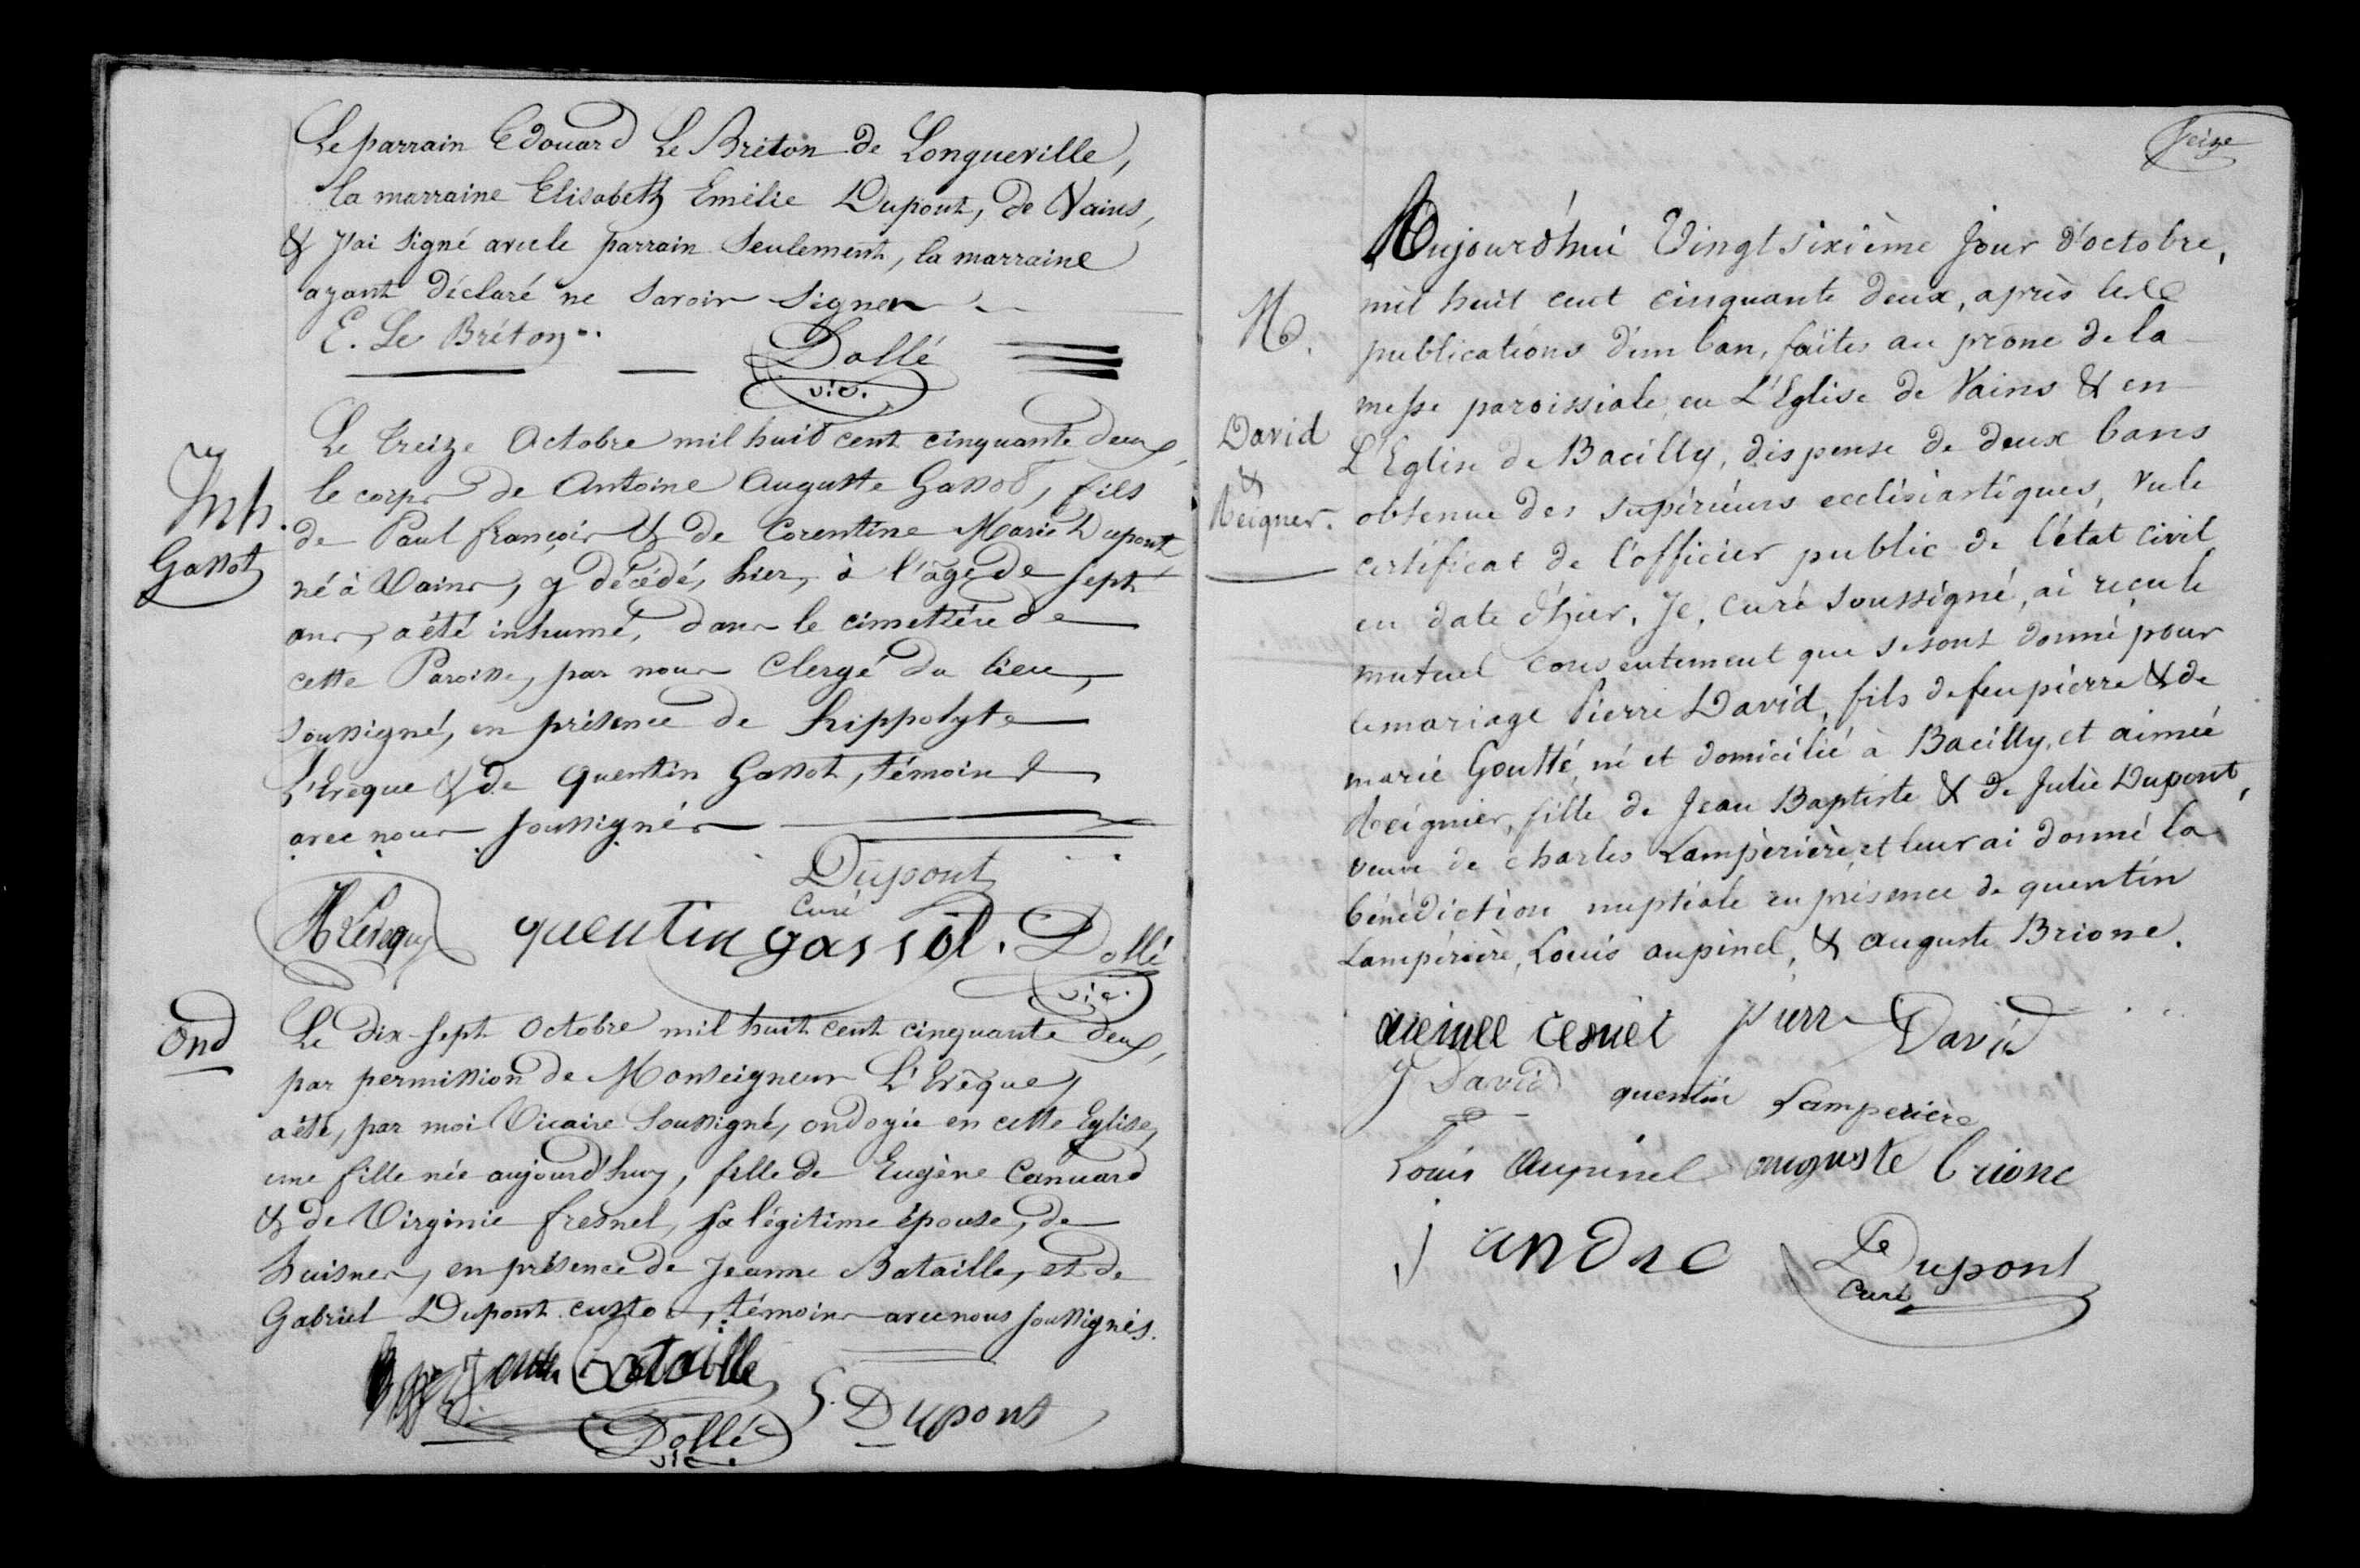 Le parrain Edouard Le Bréton de Longueville,
la marraine Elisabeth Emélie Dupont, de Vains,
& j'ai signé avec le parrain seulement, la marraine
ayant déclaré ne savoir signer
E. Le Bréton
Dollé
vic.
Inh.
Gassot
Le treize Octobre mil huit cent cinquante deux,
le corps de Antoine Auguste Gassot, fils
de Paul françois & de Corentine Marie Dupont
né à Vains, y décédé, hier, à l'âge de sept
ans, a été inhumé, dans le cimettière de
cette Paroisse, par nous Clergé du lieu,
soussigné, en présence de hippolyte
L'Evêque & de quentin Gassot, témoins
avec nous soussignés
Dupont
Curé
H Leveque quentin gassot. Dollé
vic.
Ond
Le dix-sept Octobre mil huit cent cinquante deux,
par permission de Monseigneur L'Evêque,
a été, par moi Vicaire soussigné, ondoyée en cette Eglise,
une fille née aujourd'huy, fille de Eugène Canuard
& de Virginie fresnel, sa légitime épouse, de
huisnes, en présence de Jeanne Bataille, et de
Gabriel Dupont custos, témoins avec nous soussignés.
Bataille
G. Dupont
Dollé
vic.
Seize
M.
David
&
Aujourd'hui Vingt sixième jour d'octobre,
mil huit cent cinquante deux, après les
publications d'un ban, faites au prône de la
messe paroissiale en L'Eglise de Vains & en
L'Eglise de Bacilly, dispense de deux bans
obtenue des supérieurs ecclésiastiques, vu le
certificat de l'officier public de l'état civil
en date d'hier, Je, curé soussigné, ai reçu le
mutuel consentement que se sont donné pour
le mariage Pierre David, fils de feu pierre & de
marie Goutté, né et domicilié à Bacilly, et aimée
fille de Jean Baptiste & de Julie Dupont,
veuve de charles Lampèrière, et leur ai donné la
bénédiction nuptiale en présence de quentin
Lampérière, Louis aupinel, & auguste Brione.
pierre David
J David quentin Lamperière
Louis Aupinel auguste brione
j andre
Dupont
Curé